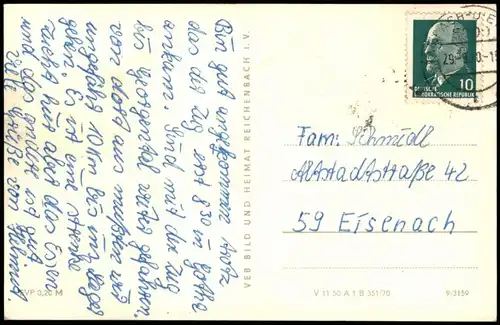 Bin gut angekommen trotz
das der Zug erst 8.30 in Gotha
ankam. Sind mit der Zug
bis Georgental gefahren.
von dort aus mußten wir
ungefähr 10 km bis ins Lager
gehen. Es ist eine
hier aber das Essen
und das andere ist gut.
Viele Grüße von Helmut.
EVP 0,20 M
VEB BILD UND HEIMAT REICHENBACH I. V.
DEUTSCHE
DEMOKRATISCHE REPUBLIK
10
Fam. Schmidl
Altstadtstraße 42
59 Eisenach
V 11 50 A 1 B 551/70
9/3159